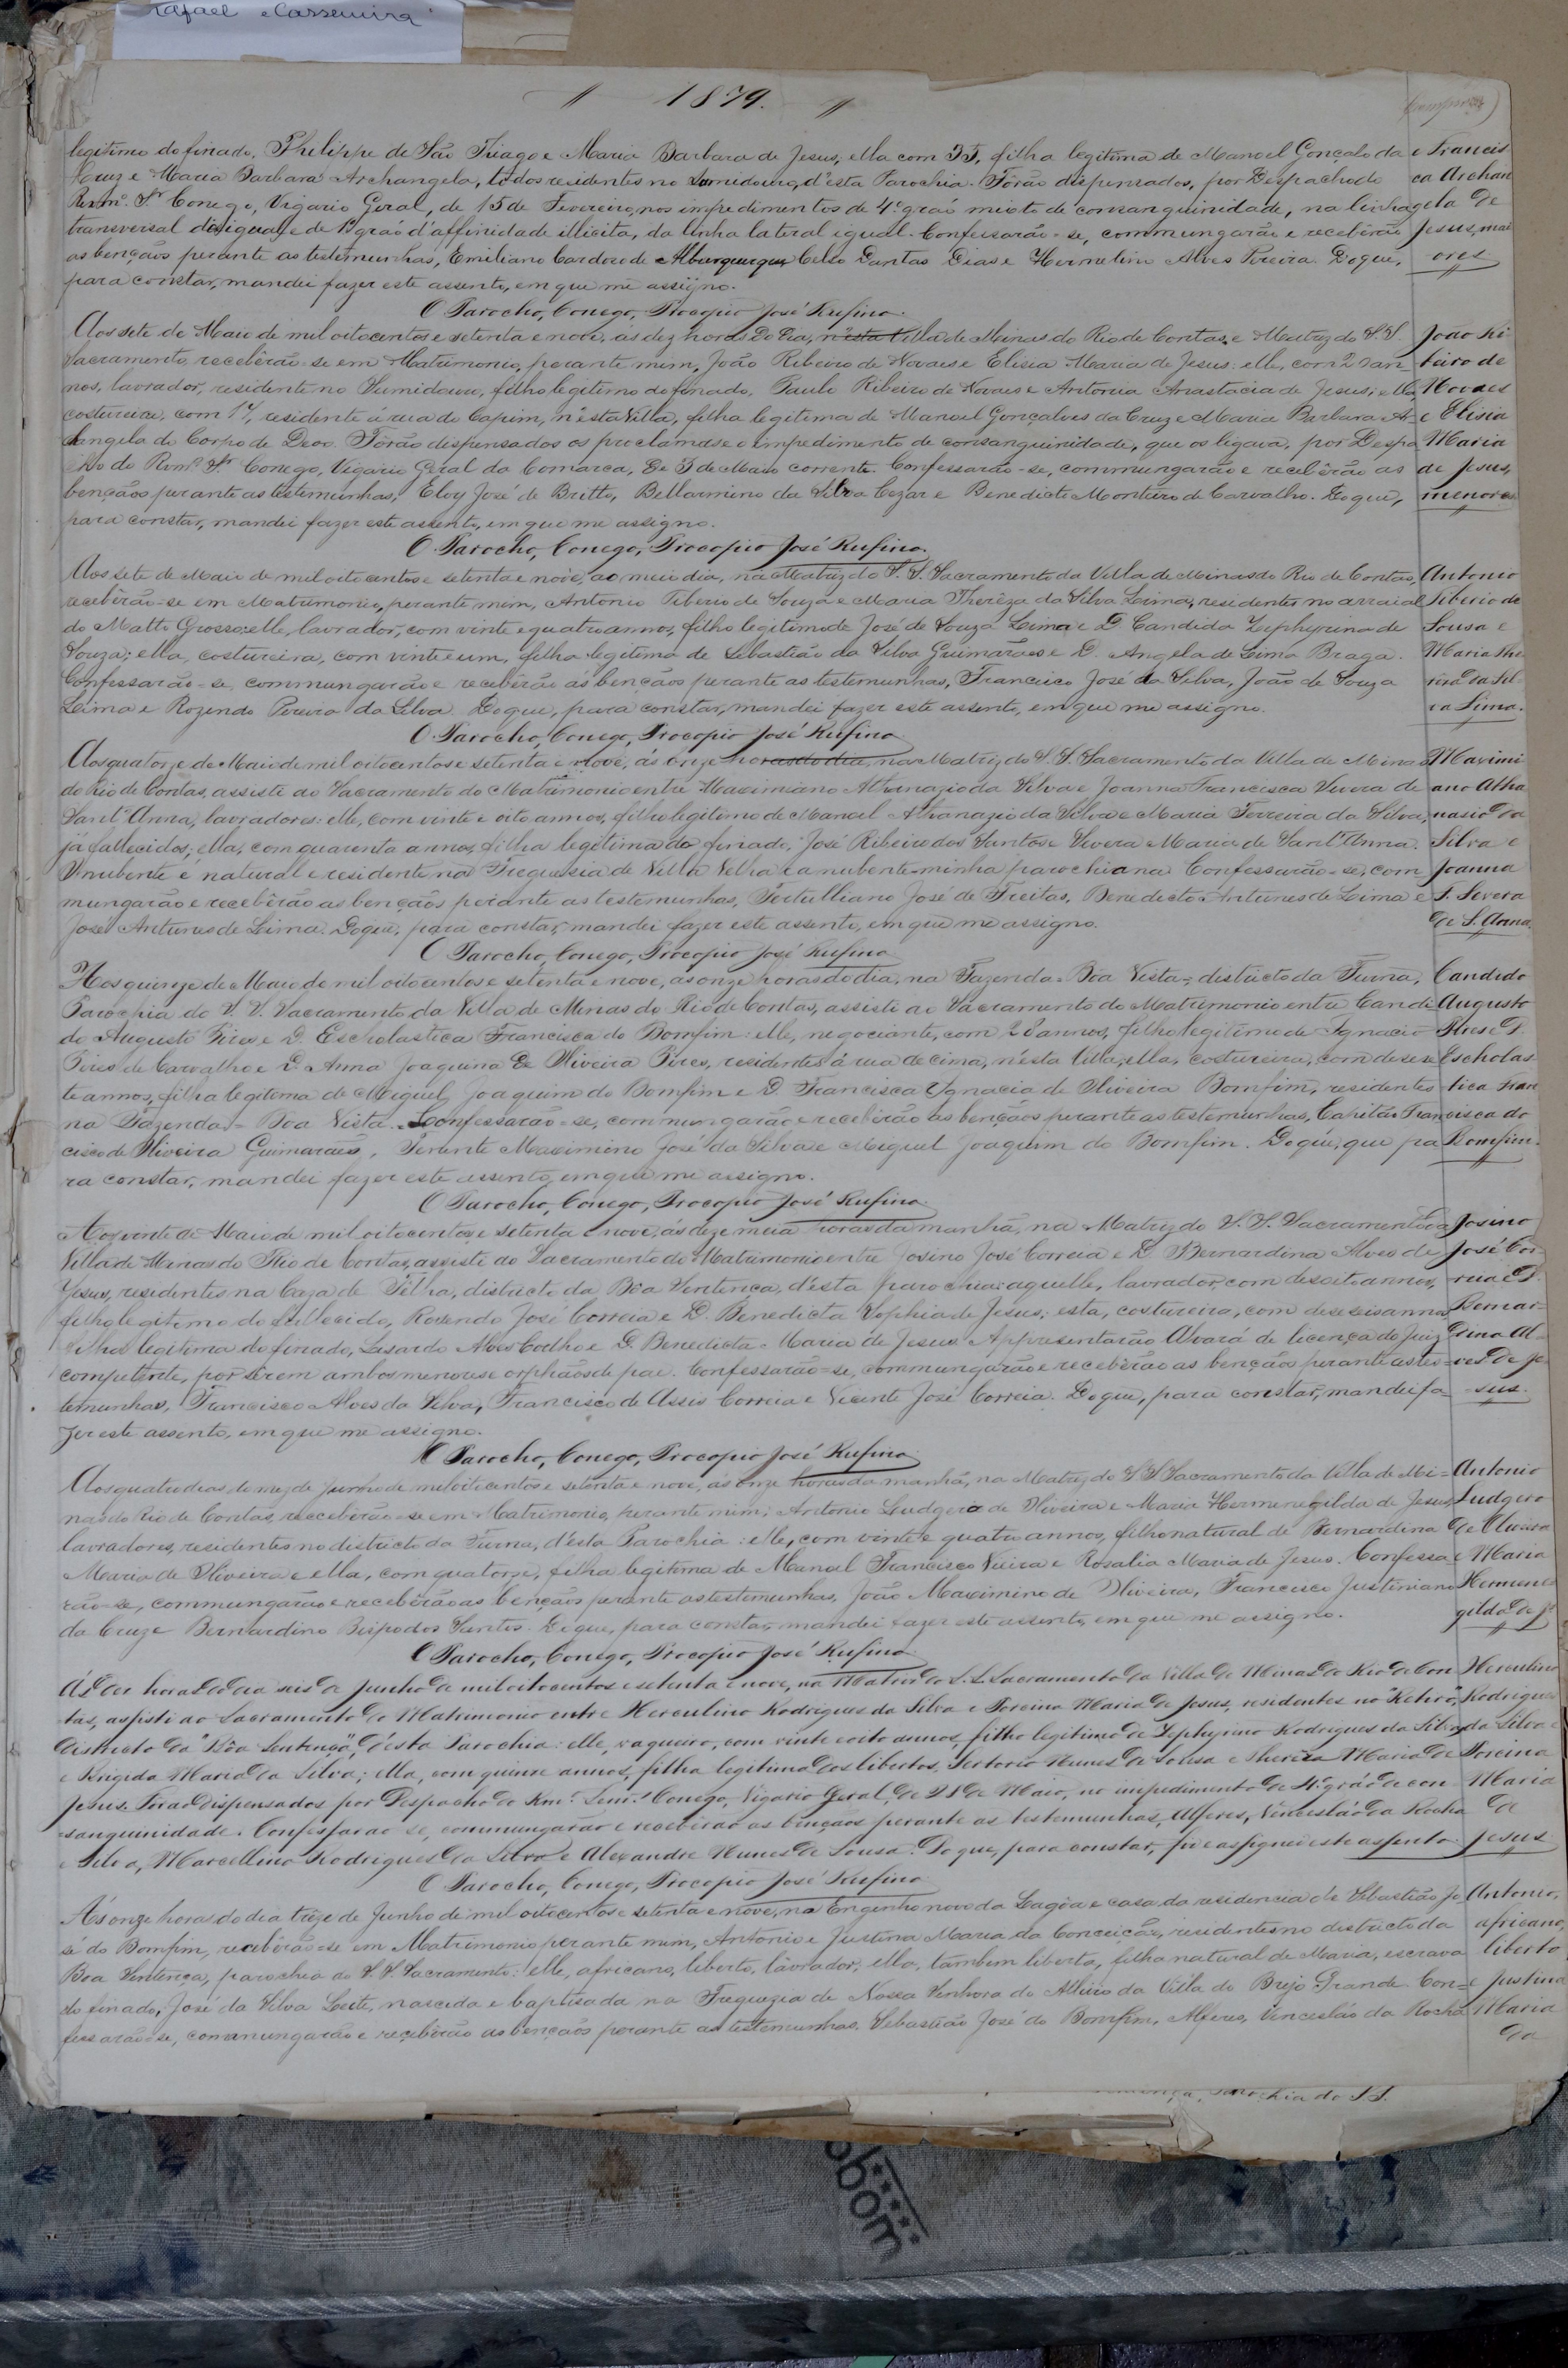 Rafael e Cassemira
1879.
legitimo do finado, Phelippe de São Thiago e Maria Barbara de Jesus; ella com 35, filha legitima de Manoel Gonçalo da
Cruz e Maria Barbara Archangela, todos residentes no Sumidouro, d'esta Parochia. Fôrão dispensados, por Despacho do
Revmº. Sr. Conego, Vigario Geral, de 15 de Fevereiro, nos impedimentos de 4º grao mixto de consanguinidade, na linha
transversal desigual, e de grao d'affinidade illicita, da linha lateral egual. Confessarão-se, commungarão e recebêrão
as bençãos perante as testemunhas, Emiliano Cardozo de Alburquerque, Celso Dantas Dias e Hermelino Alves Pereira. Do que,
para constar, mandei fazer este assento, em que me assigno.
O Parocho, Conego, Procopio José Rufino.
e Francis
ca Archan
gela de
Jesus, mai
ores
Aos sete de Maio de mil oitocentos e setenta e nove, ás dez horas do dia, n'esta Villa de Minas do Rio de Contas e Matriz do S. S.
Sacramento, recebêrão-se em Matrimonio, perante mim, João Ribeiro de Novaes e Elisia Maria de Jesus: elle, com 2 an
nos, lavrador, residente no Sumidouro, filho legitimo do finado, Paulo Ribeiro de Novaes e Antonia Anastacia de Jesus; ella
costureira, com 17, residente á rua do Capim, n'esta Villa, filha legitima de Manoel Gonçalves da Cruz e Maria Barbara A-
changela do Corpo de Deos. Fôrão dispensados os proclamas e o impedimento de consanguinidade, que os ligava, por Despa
cho do Revmº Sr. Conego, Vigario Geral da Comarca, de 5 de Maio corrente. Confessarão-se, commungarão e recebêrão as
bençãos perante as testemunhas, Eloy José de Britto, Bellarmino da Silva Cezar e Benedicto Monteiro de Carvalho. Do que,
para constar, mandei fazer este assento, em que me assigno.
O Parocho, Conego, Procopio José Rufino.
João Ri
beiro de
Novaes
e Elisia
Maria
de Jesus,
menores
Aos sete de Maio de mil oitocentos e setenta e nove, ao meio dia, na Matriz do S. S. Sacramento da Villa de Minas do Rio de Contas,
recebêrão-se em Matrimonio, perante mim, Antonio Tiberio de Souza e Maria Therêza da Silva Lima, residentes no arraial
do Matto Grosso: elle, lavrador, com vinte e quatro annos, filho legitimo de José de Souza Lima e D. Candida Zephyrina de
Souza; ella, costureira, com vinte e um, filha legitima de Sebastião da Silva Guimarães e D. Angela de Lima Braga.
Confessarão-se, commungarão e recebêrão as bençãos perante as testemunhas, Francisco José da Silva, João de Souza
Lima e Rozendo Pereira da Silva. Do que, para constar, mandei fazer este assento, em que me assigno.
O Parocho, Conego, Procopio José Rufino
Antonio
Tiberio de
Sousa e
Maria The
reza da Sil
va Lima.
Aos quatorze de Maio de mil oitocentos e setenta e nove, ás onze horas do dia, na Matriz do S. S. Sacramento da Villa de Minas
do Rio de Contas, assisti ao Sacramento do Matrimonio entre Maximiano Athanazio da Silva e Joanna Francisca Severa de
Sant'Anna, lavradores: elle, com vinte e oito annos, filho legitimo de Manoel Athanazio da Silva e Maria Ferreira da Silva,
já fallecidos; ella, com quarenta annos, filha legitima do finado, José Ribeiro dos Santos e Severa Maria de Sant'Anna.
O nubente é natural e residente na Freguesia de Villa Velha e a nubente minha parochiana. Confessarão-se, com
mungarão e recebêrão as bençãos perante as testemunhas, Tertulliano José de Freitas, Benedicto Antunes de Lima e
José Antunes de Lima. Do que, para constar, mandei fazer este assento, em que me assigno.
O Parocho, Conego, Procopio José Rufino
Maximi
ano Atha
nasio da
Silva e
Joanna
F. Severa
de S. Anna
Aos quinze de Maio de mil oitocentos e setenta e nove, as onze horas do dia, na Fazenda = Boa Vista =, districto da Furna,
Parochia do S. S. Sacramento da Villa de Minas do Rio de Contas, assisti ao Sacramento do Matrimonio entre Candi
do Augusto Pires e D. Escholastica Francisca do Bomfim: elle, negociante, com annos, filho legitimo de Ignacio
Pires de Carvalho e D. Anna Joaquina de Oliveira Pires, residentes á rua de cima, n'esta Villa; ella, costureira, com dese se
te annos, filha legitima de Miguel Joaquim do Bomfim e D. Francisca Ignacia de Oliveira Bomfim, residentes
na Fazenda = Boa Vista. Confessarão-se, commungarão e recebêrão as bençãos perante as testemunhas, Capitão Fran
cisco de Oliveira Guimarães, Tenente Maximino José da Silva e Miguel Joaquim do Bomfim. Do que, que pa
ra constar, mandei fazer este assento em que me assigno.
O Parocho, Conego, Procopio José Rufino.
Candido
Augusto
Pires e D.
Escholas
tica Fran
cisca do
Bomfim.
Aos vinte de Maio de mil oitocentos e setenta e nove, ás dez e meia horas da manhã, na Matriz do S. S. Sacramento da
Villa de Minas do Rio de Contas, assisti ao Sacramento do Matrimonio entre Josino José Correia e D. Bernardina Alves de
Jesus, residentes na Caza de Telha, districto da Boa Sentença, d'esta parochia: aquelle, lavrador, com desoito annos,
filho legitimo do fallecido, Rozendo José Correia e D. Benedicta Sophia de Jesus; esta, costureira, com deseseis annos
filha legitima do finado, Lasaro Alves Coelho e D. Benedicta Maria de Jesus. Appresentarão Alvará de licença do Juiz
competente, por sêrem ambos menores e orphãos de pae. Confessarão-se, commungarão e recebêrão as bençãos perante as tes-
temunhas, Francisco Alves da Silva, Francisco de Assis Correia e Vicente José Correia. Do que, para constar, mandei fa-
zer este assento, em que me assigno.
O Parocho, Conego, Procopio José Rufino.
Josino
José Cor
reia e D.
Bernar-
dina Al-
ves de Je-
sus
Aos quatro dias do mez de Junho de mil oitocentos e setenta e nove, ás onze horas da manhã, na Matriz do S. S. Sacramento da Villa de Mi-
nas do Rio de Contas, recebêrão-se em Matrimonio, perante mim, Antonio Ludgero de Oliveira e Maria Hermenegilda de Jesus,
lavradores, residentes no districto da Furna, d'esta Parochia: elle, com vinte e quatro annos, filho natural de Bernardina
Maria de Oliveira e ella, com quatorze, filha legitima de Manoel Francisco Vieira e Rosalia Maria de Jesus. Confessa
rão-se, commungarão e recebêrão as bençãos perante as testemunhas, João Maximino de Oliveira, Francisco Justiniano
da Cruz e Bernardino Bispo dos Santos. Do que, para constar, mandei fazer este assento, em que me assigno.
O Parocho, Conego, Procopio José Rufino
Antonio
Ludgero
de Oliveira
e Maria
Hermene
gilda de Js
Ás dez horas do dia seis de Junho de mil oitocentos e setenta e nove, na Matriz do S. S. Sacramento da Villa de Minas do Rio de Con
tas, assisti ao Sacramento do Matrimonio entre Herculino Rodrigues da Silva e Porcina Maria de Jesus, residentes no "Retiro",
districto da "Bôa Sentença", d'esta Parochia: elle, vaqueiro, com vinte e oito annos, filho legitimo de Zephyrino Rodrigues da Silva
e Brigida Maria da Silva; ella, com quinze annos, filha legitima dos libertos, Sertorio Nunes de Sousa e Thereza Maria de
Jesus. Forão dispensados por Despacho do Rmº. Senr. Conego, Vigario Geral, de 28 de Maio, no impedimento de 4º gráo de con
sanguinidade. Confessarão-se, commungarão e receberão as bençãos perante as testemunhas, Alferes, Vencesláo da Rocha
e Silva, Marcellino Rodrigues da Silva e Alexandre Nunes de Sousa. Do que, para constar, fiz e assignei este assento.
O Parocho, Conego, Procopio José Rufino.
Herculino
Rodrigues
da Silva e
Porcina
Maria
de
Jesus
Ás onze horas do dia treze de Junho de mil oitocentos e setenta e nove, no Engenho novo da Lagôa e casa da residencia de Sebastião Jo
sé do Bomfim, recebêrão-se em Matrimonio perante mim, Antonio e Justina Maria da Conceição, residentes no districto da
Boa Sentença, parochia do S. S. Sacramento: elle, africano, liberto, lavrador; ella, tambem liberta, filha natural de Maria, escrava
do finado, José da Silva Leite, nascida e baptisada na Freguezia de Nossa Senhora do Allivio da Villa do Brejo Grande. Con-
fessarão-se, commungarão e recebêrão as bençãos perante as testemunhas, Sebastião José do Bomfim, Alferes, Vincesláo da Rocha
Antonio,
africano,
liberto
e Justina
Maria
da